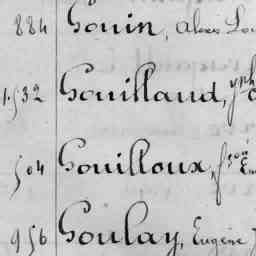 884 Gouin, Alexis
1.532 Gouilland, Jph
504 Gouilloux, fçois
956 Goulay, Eugène